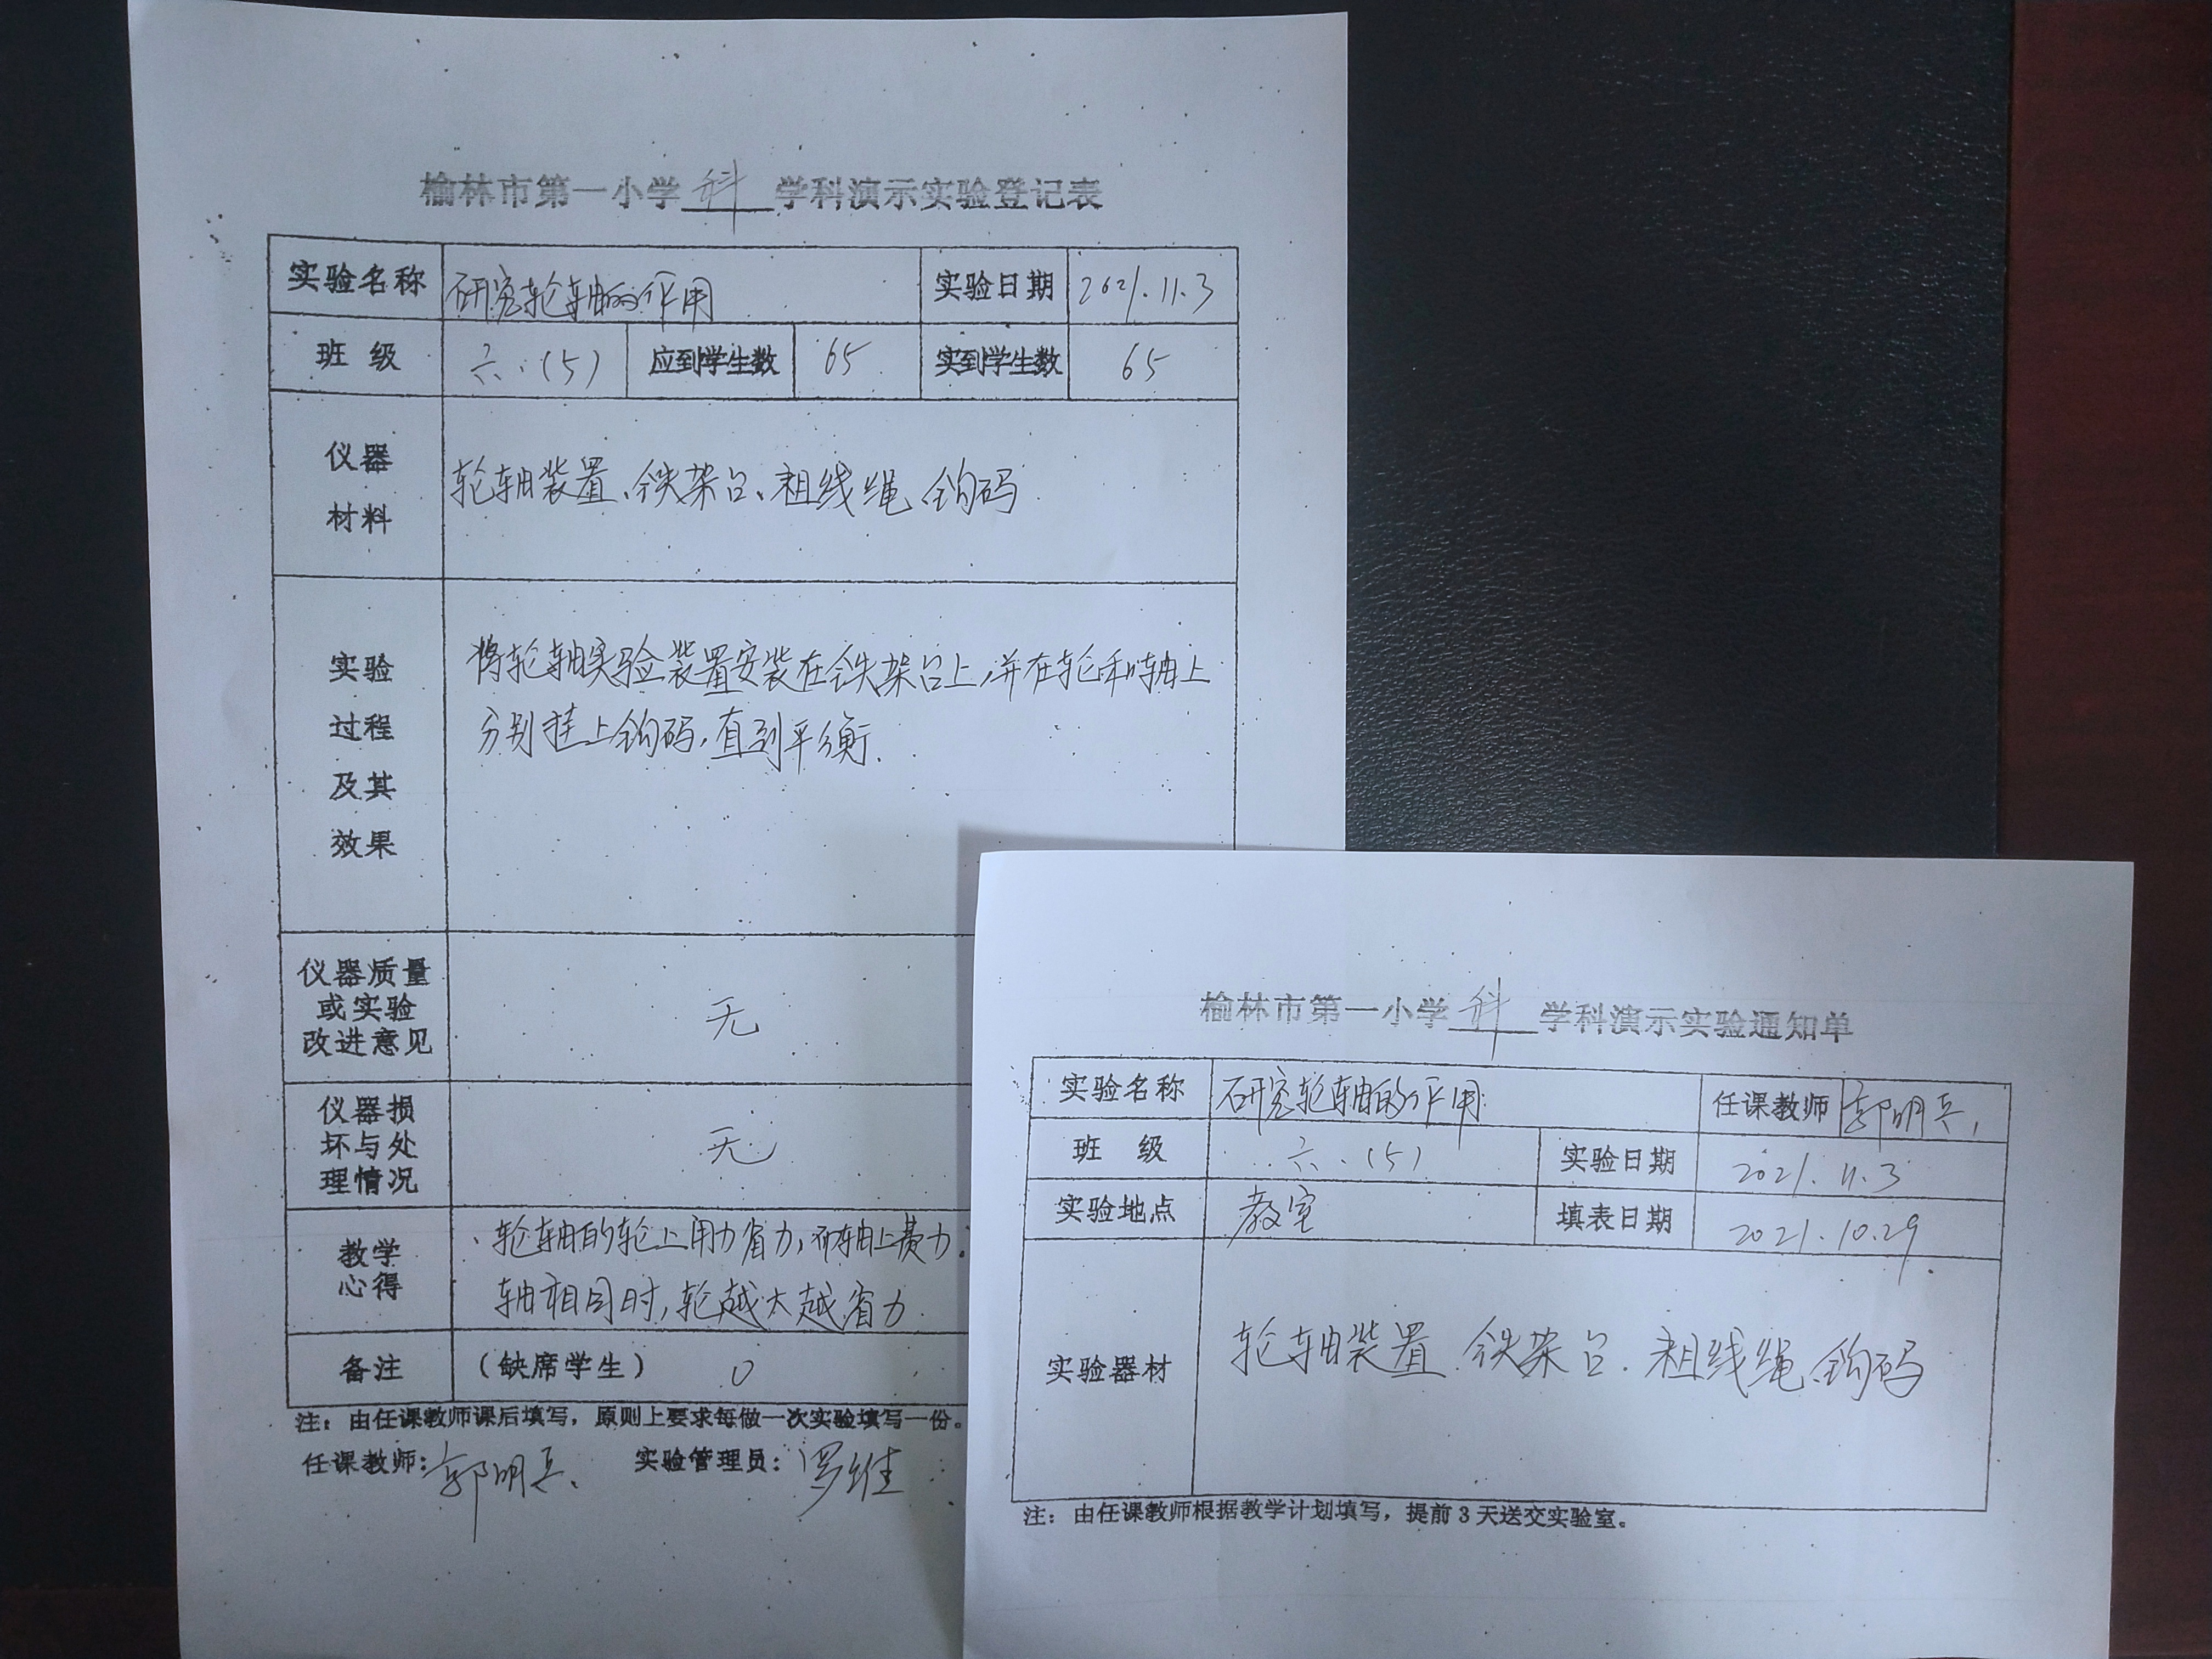 榆林市第一小学 科 学科演示实验登记表
实验名称 研究轮轴的作用 实验日期 2021.11.3
班 级 六.(5) 应到学生数 65 实到学生数 65
仪器
材料
轮轴装置、铁架台、粗线绳、钩码
实验
过程
及其
效果
将轮轴实验装置安装在铁架台上,并在轮和轴上
分别挂上钩码,直到平衡.
仪器质量
或实验
改进意见
无
仪器损
坏与处
理情况
无
教学
心得
轮轴的轮上用力省力,而轴上费力.
轴相同时,轮越大越省力.
备注 (缺席学生) 0
注：由任课教师课后填写，原则上要求每做一次实验填写一份。
任课教师：郭明兵. 实验管理员：罗维
榆林市第一小学 科 学科演示实验通知单
实验名称 研究轮轴的作用 任课教师 郭明兵
班 级 六.(5) 实验日期 2021.11.3
实验地点 教室 填表日期 2021.10.29
实验器材 轮轴装置.铁架台.粗线绳.钩码
注：由任课教师根据教学计划填写，提前3天送交实验室。